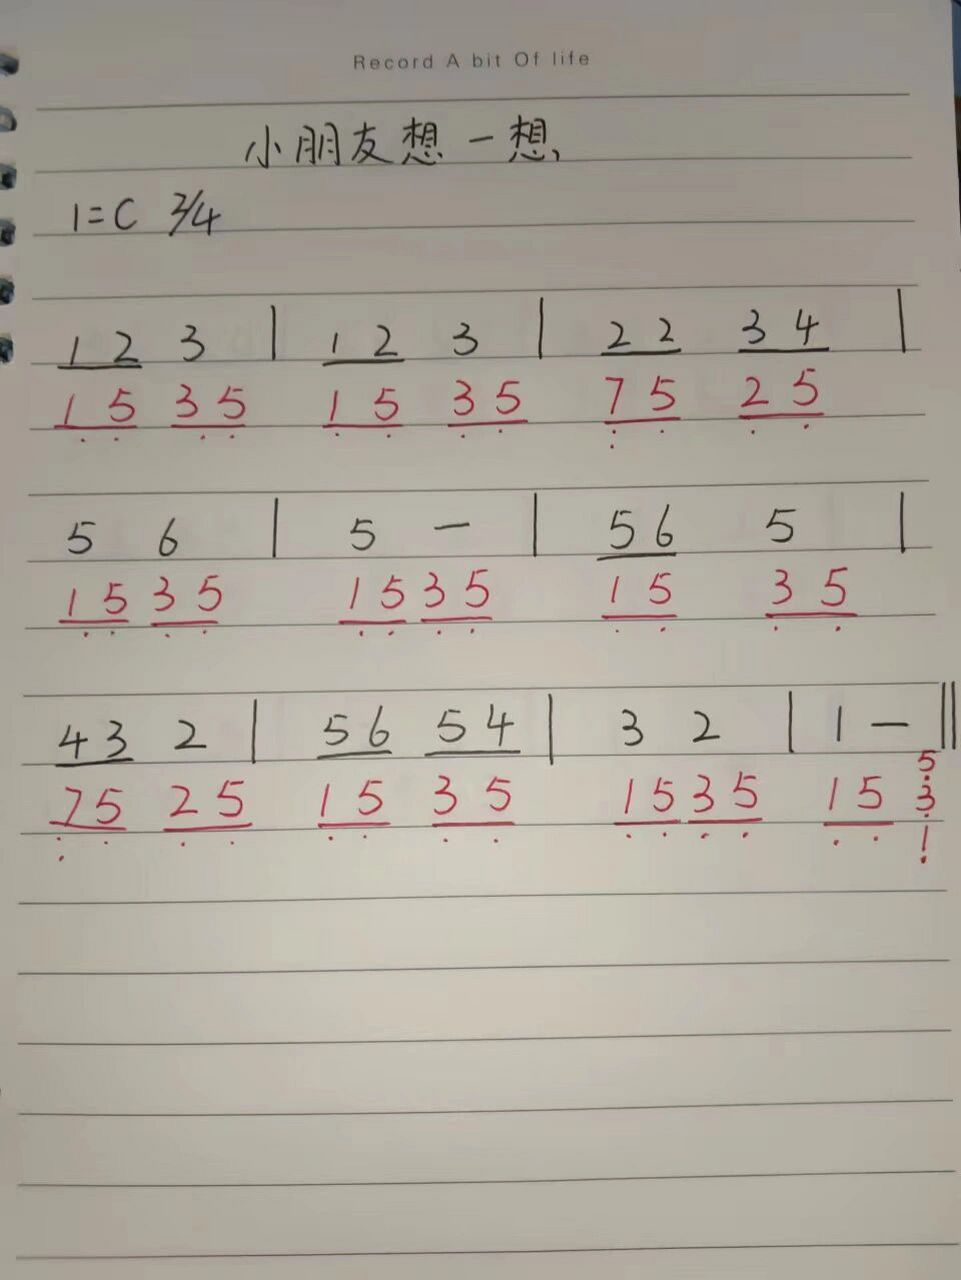 Record A bit Of life
小朋友想一想
1=C 2/4
1 2 3 | 1 2 3 | 2 2 3 4 |
1 5 3 5 1 5 3 5 7 5 2 5
5 6 | 5 — | 5 6 5 |
1 5 3 5 1 5 3 5 1 5 3 5
4 3 2 | 5 6 5 4 | 3 2 | 1 — ||
7 5 2 5 1 5 3 5 1 5 3 5 1 5 5
3
1